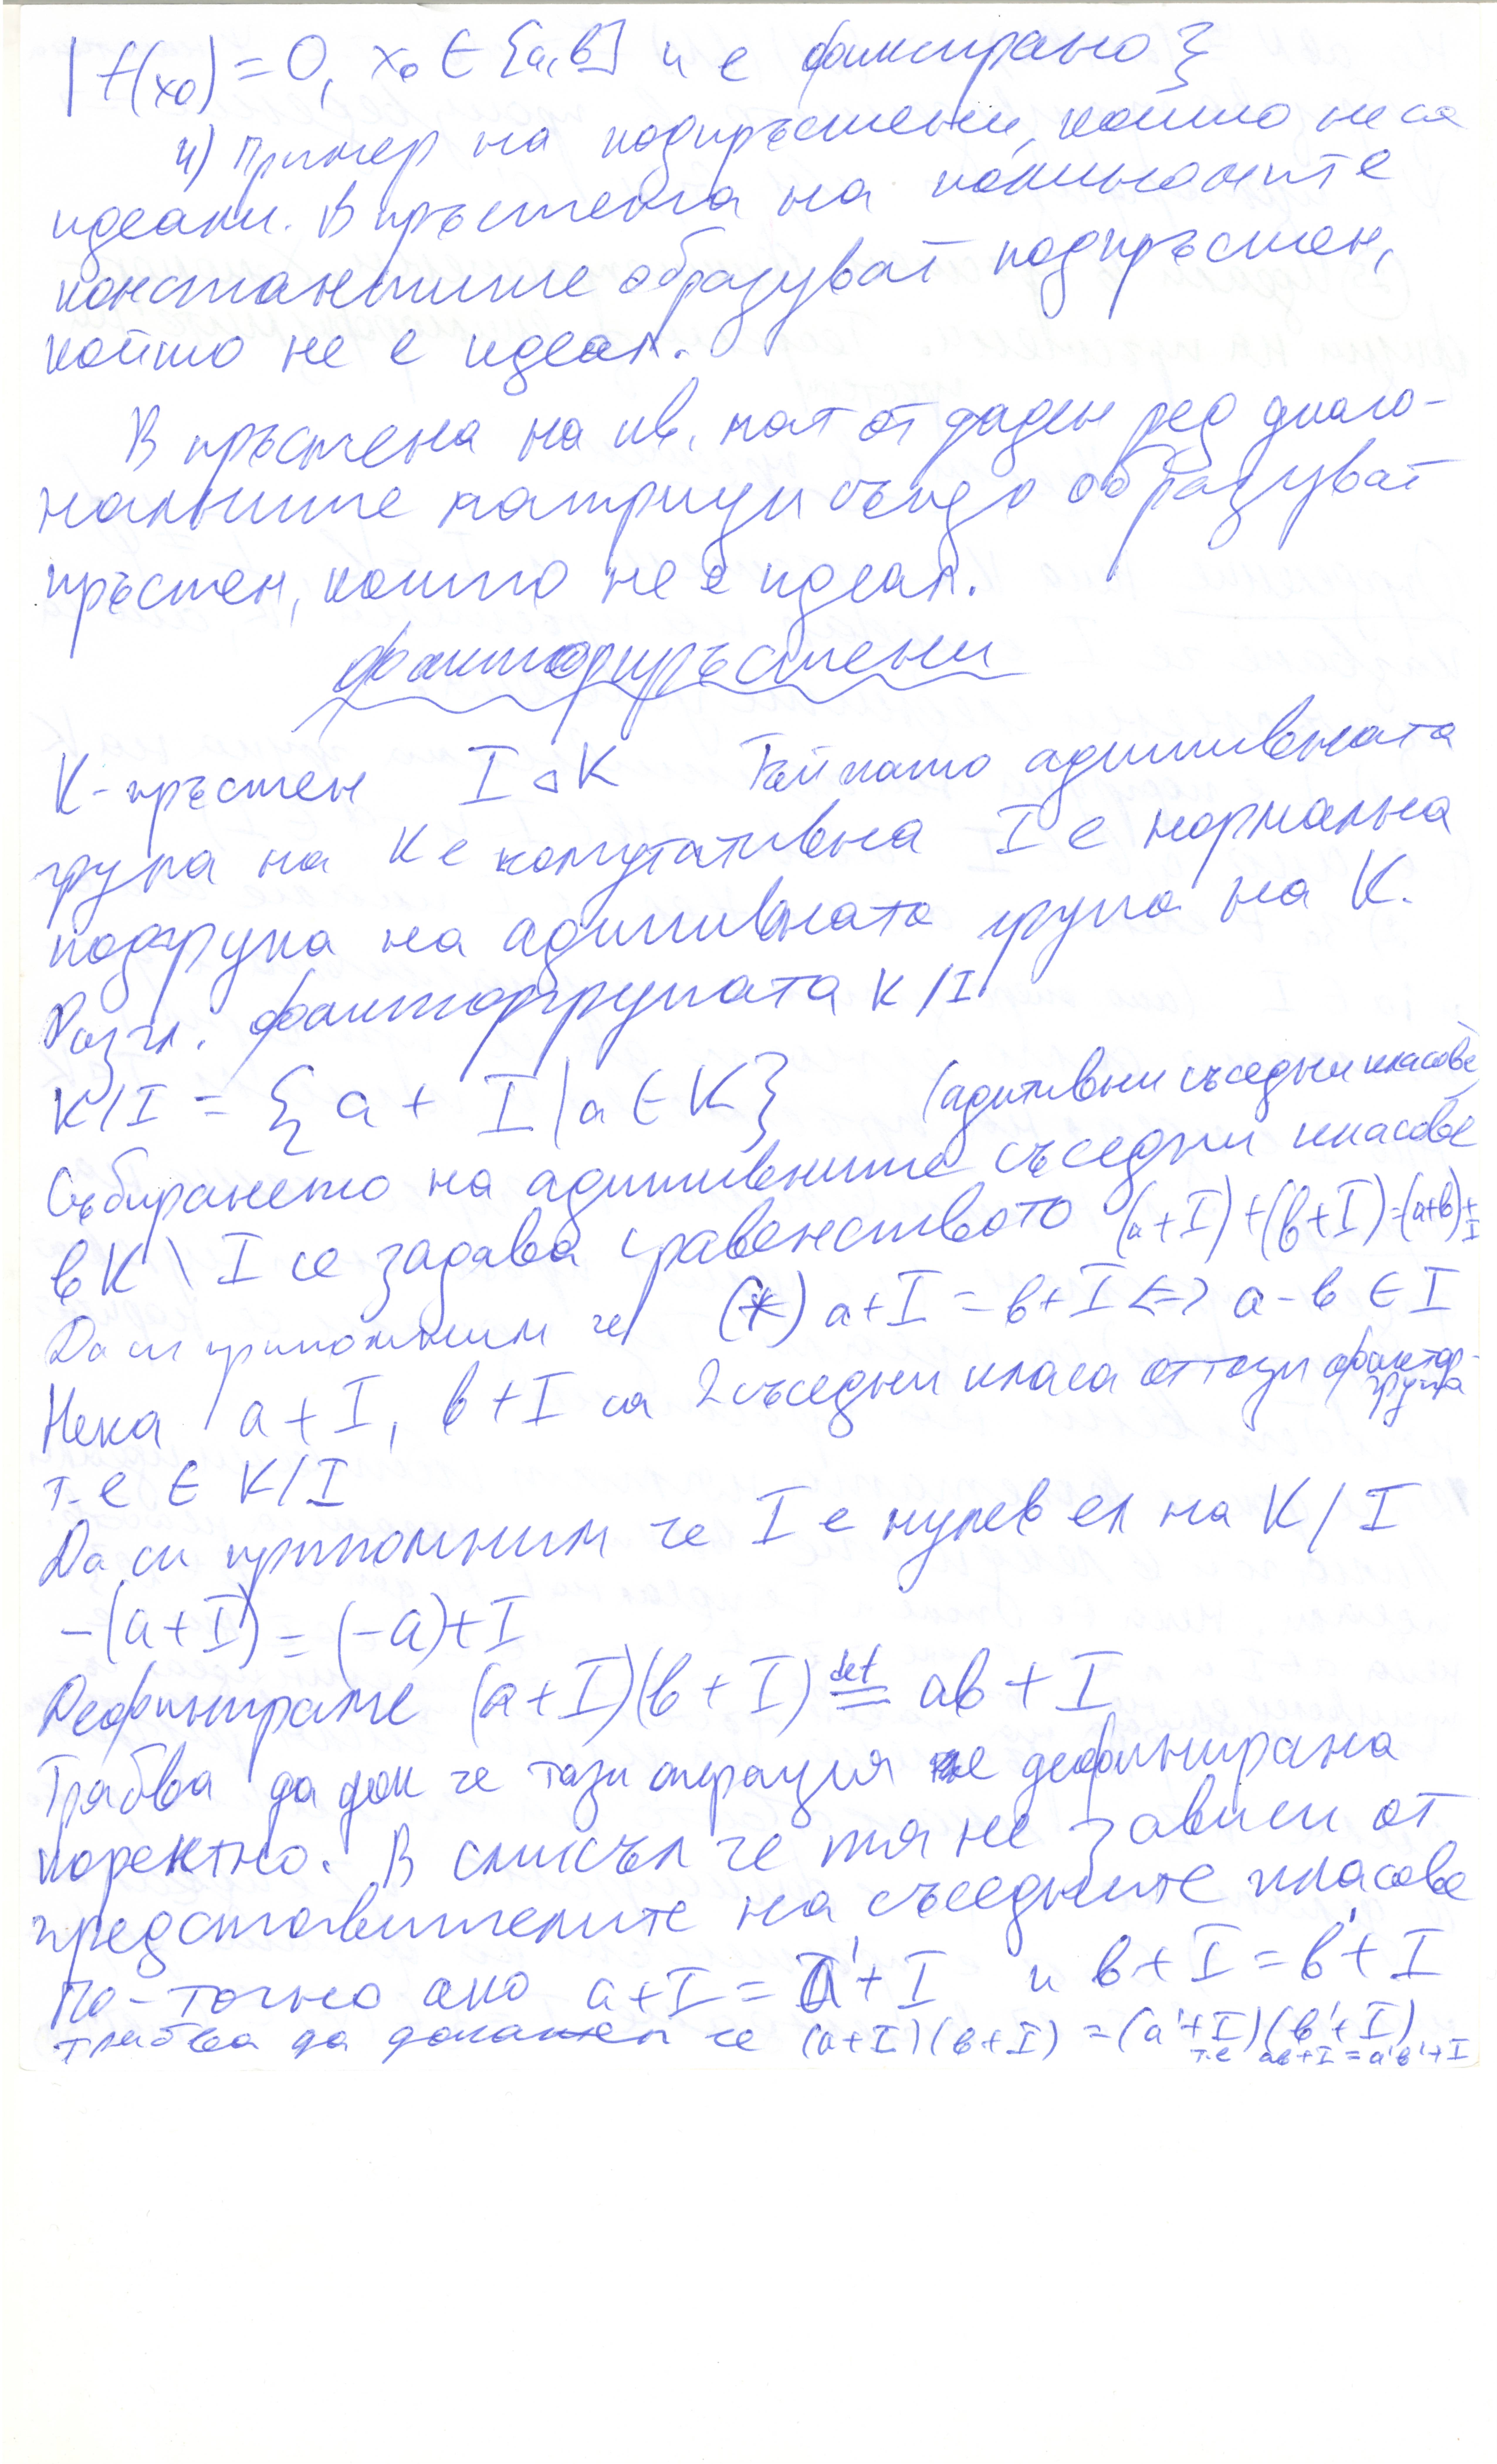 | f(x₀) = 0, x₀ ∈ [a,b] и е фиксирано}
4) Пример на подпръстени, които не са
идеали. В пръстена на полиномите
константите образуват подпръстен,
който не е идеал.
В пръстена на кв. мат от даден ред диаго-
налните матрици също образуват
пръстен, който не е идеал.
Факторпръстени
K - пръстен I ◁ K Тъй като адитивната
група на K е комутативна I е нормална
подгрупа на адитивната група на K.
Разгл. факторгрупата K/I
K/I = {a + I | a ∈ K} (адитивни съседни класове)
Събирането на адитивните съседни класове
в K \ I се задава с равенството (a+I)+(b+I)=(a+b)+I
Да си припомним че (*) a+I = b+I <=> a-b ∈ I
Нека a+I, b+I са 2 съседни класа от тази фактор-
група
т.е ∈ K/I
Да си припомним че I е нулев ел на K/I
-(a+I) = (-a)+I
Дефинираме (a+I)(b+I) def= ab+I
Трябва да док че тази операция е дефинирана
коректно. В смисъл че тя не зависи от
представителите на съседните класове
По-точно ако a+I = a'+I и b+I = b'+I
трябва да докажем че (a+I)(b+I) = (a'+I)(b'+I)
т.е ab+I = a'b'+I